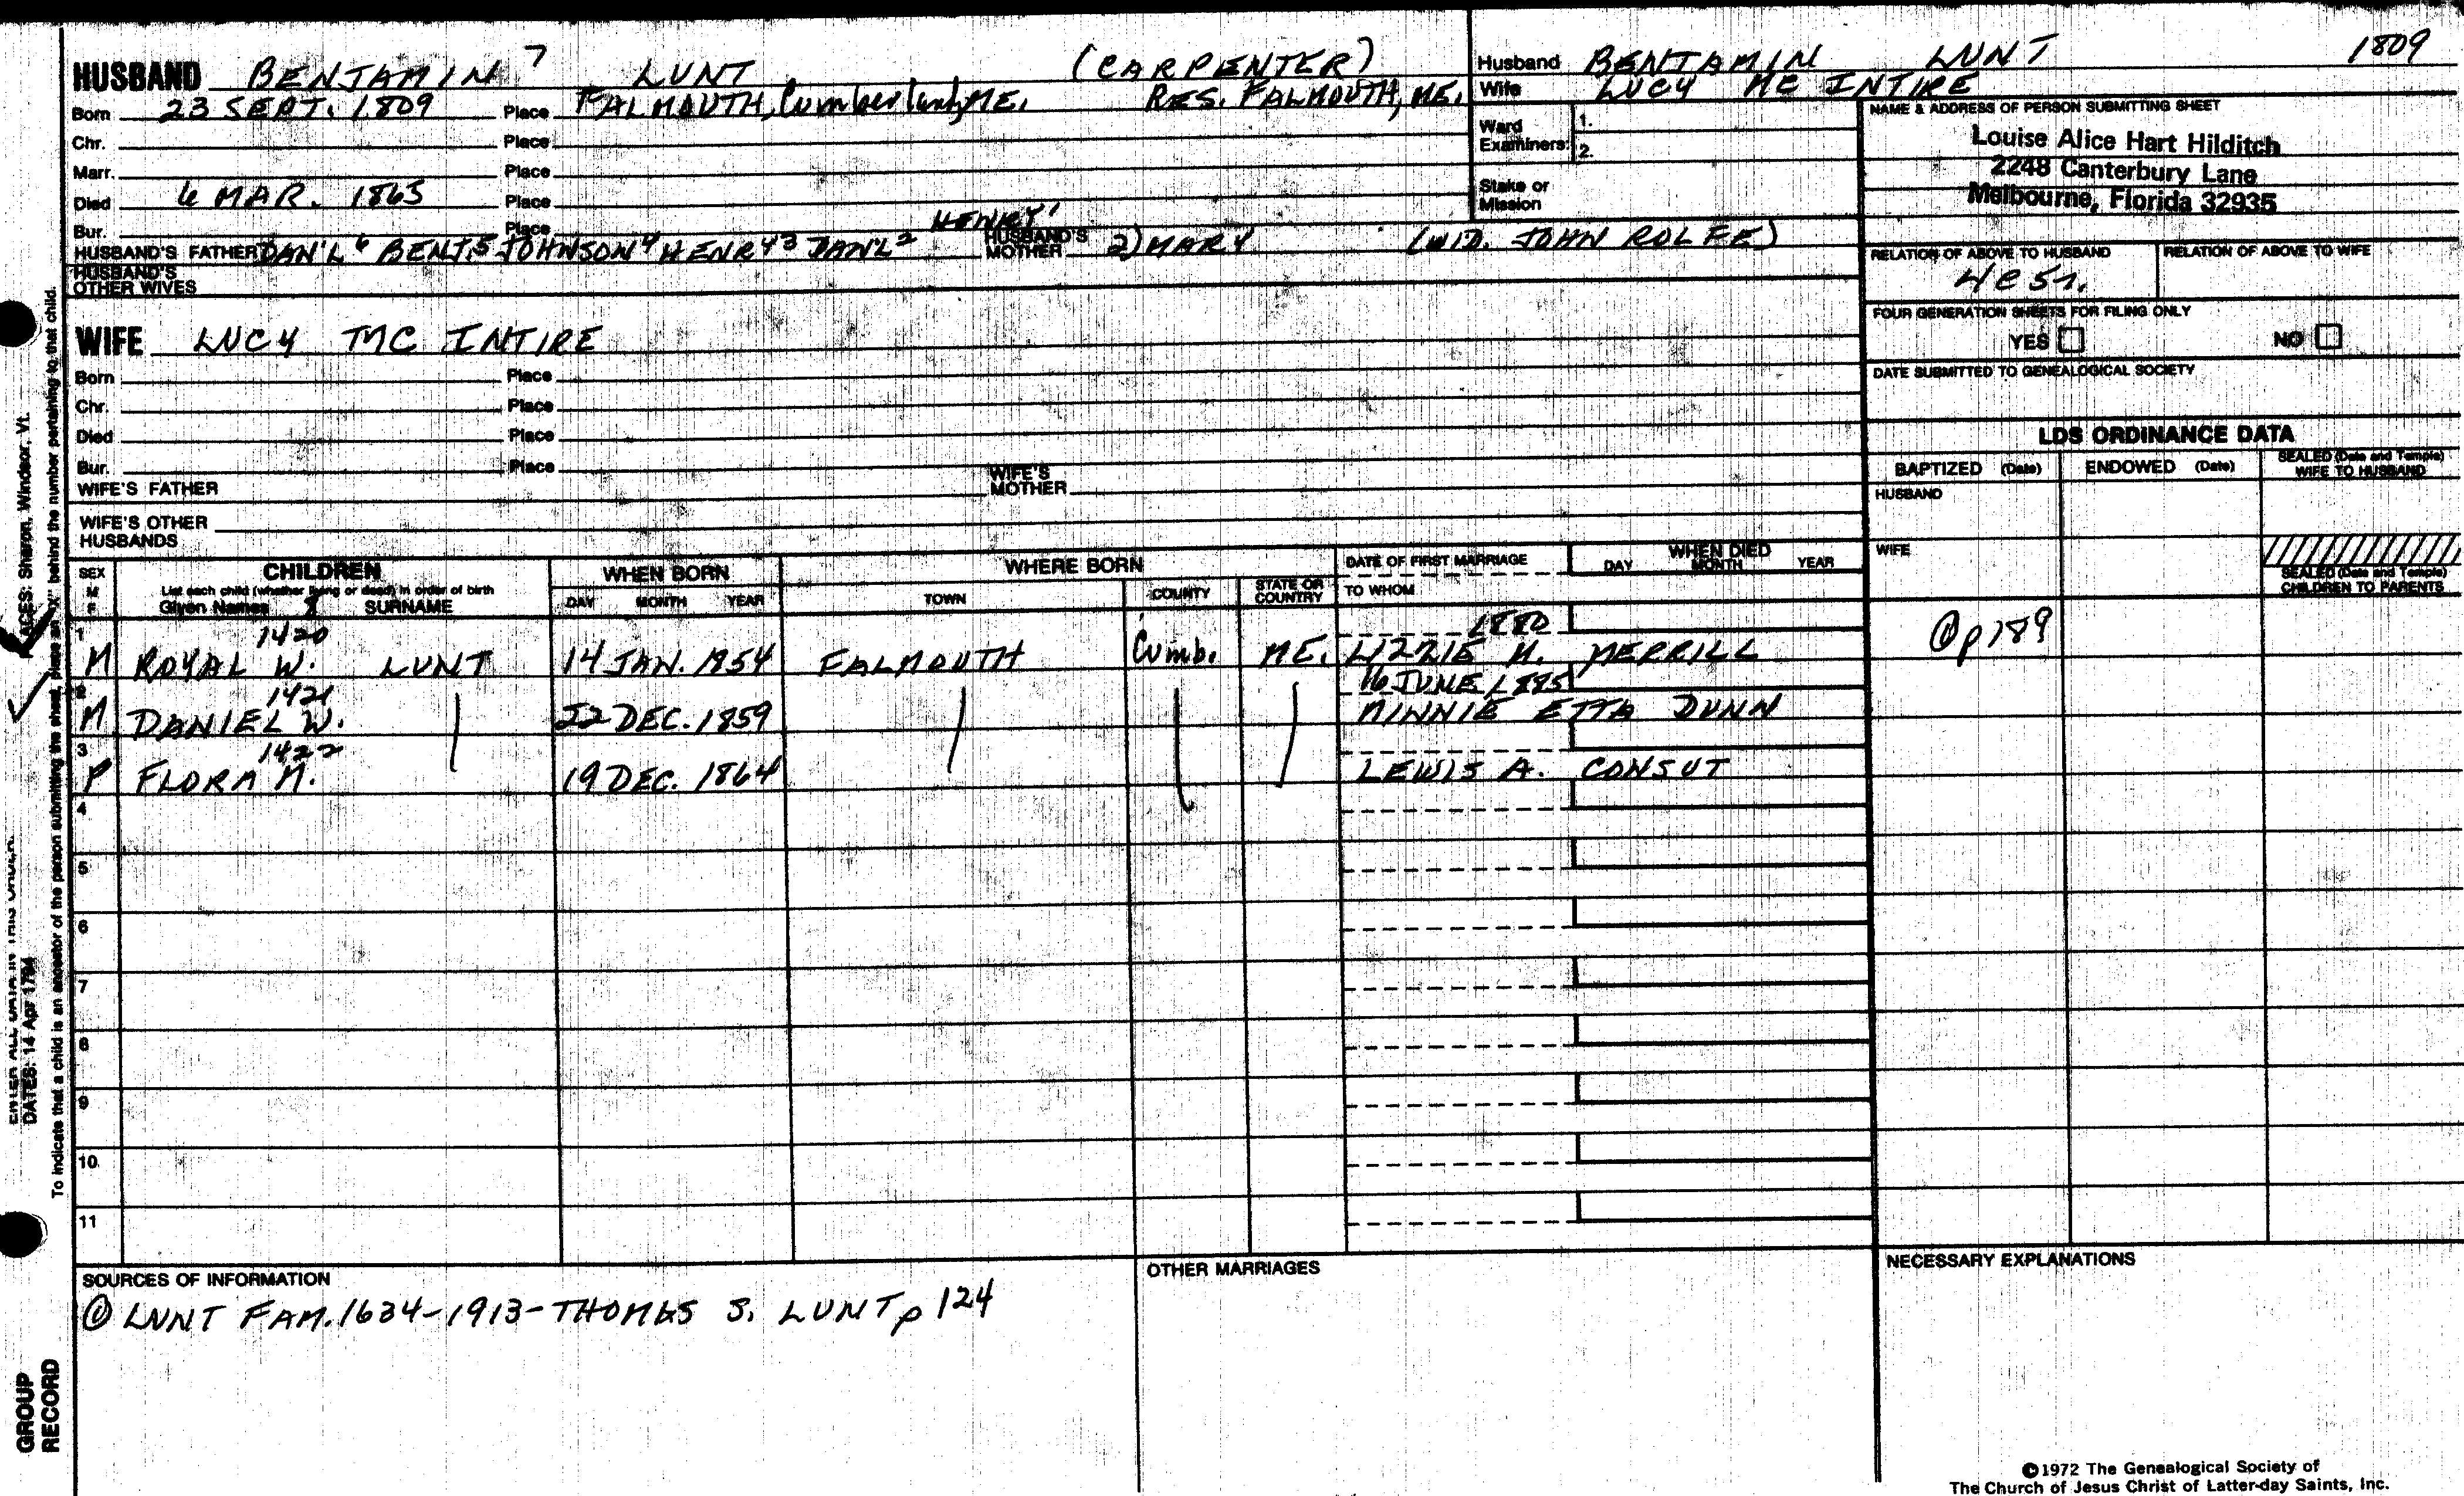 HUSBAND BENJAMIN 7 LUNT (CARPENTER)
Born 23 SEPT. 1809 Place FALMOUTH, Cumberland, ME. RES. FALMOUTH, ME.
Chr. Place
Marr. Place
Died 6 MAR. 1865 Place
Bur. Place
HUSBAND'S FATHER DAN'L 6 BENJ. 5 JOHNSON 4 HENRY 3 DAN'L 2 HENRY 1 HUSBAND'S MOTHER 2) MARY (WID. JOHN ROLFE)
HUSBAND'S OTHER WIVES
WIFE LUCY MC INTIRE
Born Place
Chr. Place
Died Place
Bur. Place
WIFE'S FATHER WIFE'S MOTHER
WIFE'S OTHER HUSBANDS
Husband BENJAMIN LUNT 1809
Wife LUCY MC INTIRE
Ward Examiners: 1.
2.
Stake or Mission
NAME & ADDRESS OF PERSON SUBMITTING SHEET
Louise Alice Hart Hilditch
2248 Canterbury Lane
Melbourne, Florida 32935
RELATION OF ABOVE TO HUSBAND RELATION OF ABOVE TO WIFE
FOUR GENERATION SHEETS FOR FILING ONLY
YES NO
DATE SUBMITTED TO GENEALOGICAL SOCIETY
LDS ORDINANCE DATA
BAPTIZED (Date) ENDOWED (Date) SEALED (Date and Temple) WIFE TO HUSBAND
HUSBAND
WIFE
SEALED (Date and Temple) CHILDREN TO PARENTS
SEX M F CHILDREN WHEN BORN WHERE BORN DATE OF FIRST MARRIAGE WHEN DIED
List each child (whether living or dead) in order of birth
Given Names 8 SURNAME DAY MONTH YEAR TOWN COUNTY STATE OR COUNTRY TO WHOM DAY MONTH YEAR
1 1420 1880
M ROYAL W. LUNT 14 JAN. 1854 FALMOUTH Cumb. ME. LIZZIE M. MERRILL p 189
2 1421 16 JUNE 1885
M DANIEL W. 22 DEC. 1859 MINNIE ETTA DUNN
3 1422
F FLORA M. 19 DEC. 1864 LEWIS A. CONSUT
4
5
6
7
8
9
10
11
SOURCES OF INFORMATION
① LUNT FAM. 1634-1913-THOMAS S. LUNT p 124
OTHER MARRIAGES
NECESSARY EXPLANATIONS
©1972 The Genealogical Society of
The Church of Jesus Christ of Latter-day Saints, Inc.
PLACES: Sharon, Windsor, Vt.
ENTER ALL DATA IN THIS ORDER:
DATES: 14 Apr 1794
To indicate that a child is an ancestor of the person submitting the sheet, place an "X" behind the number pertaining to that child.
GROUP RECORD